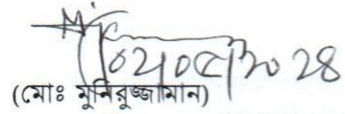 ০২/০৫/২০২৪
(মোঃ মুনিরুজ্জামান)